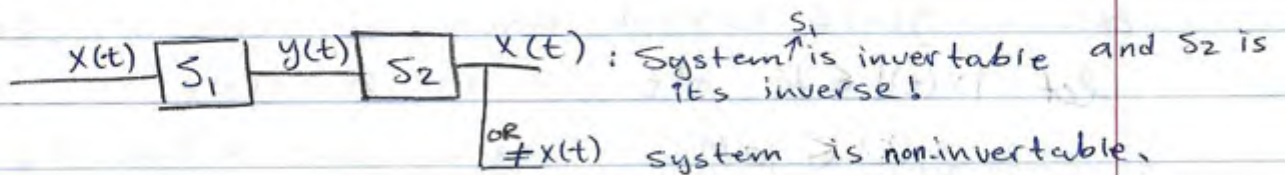 x(t) S₁ y(t) S₂ x(t) : System S₁ is invertable and S₂ is
its inverse!
OR ≠x(t) system is non.invertable.